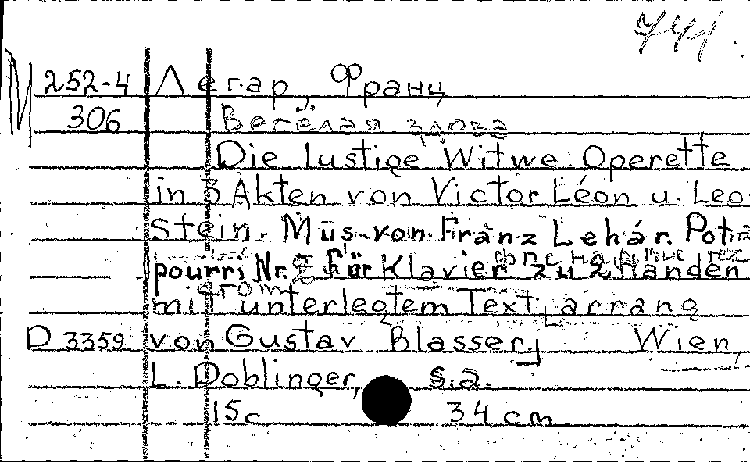 741.
М 252-4 Легар, Франц
306 Весёлая вдова
Die lustige Witwe Operette
in 3 Akten von Victor Léon u. Leo
Stein. Mus. von Franz Lehár. Pot-
pourri Nr. I für Klavier zu 2 Händen
mit unterlegtem Text, arrang
D 3359 von Gustav Blasser Wien,
L. Doblinger, s.a.
15c 34 cm